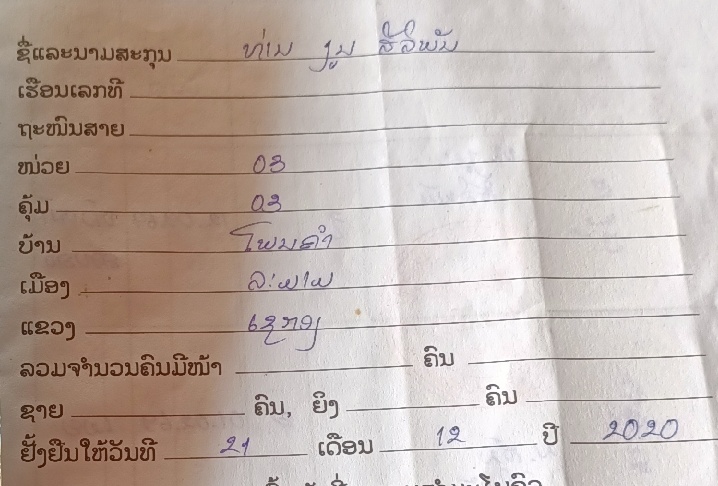 ຊື່ແລະນາມສະກຸນ ທ່ານ ງູນ ສີລິພັນ
ເຮືອນເລກທີ
ຖະໜົນສາຍ
ໜ່ວຍ 03
ຄຸ້ມ 03
ບ້ານ ໂພນຄຳ
ເມືອງ ລະມາມ
ແຂວງ ເຊກອງ
ລວມຈຳນວນຄົນມີໜ້າ ຄົນ
ຊາຍ ຄົນ, ຍິງ ຄົນ
ຢັ້ງຢືນໃຫ້ວັນທີ 21 ເດືອນ 12 ປີ 2020